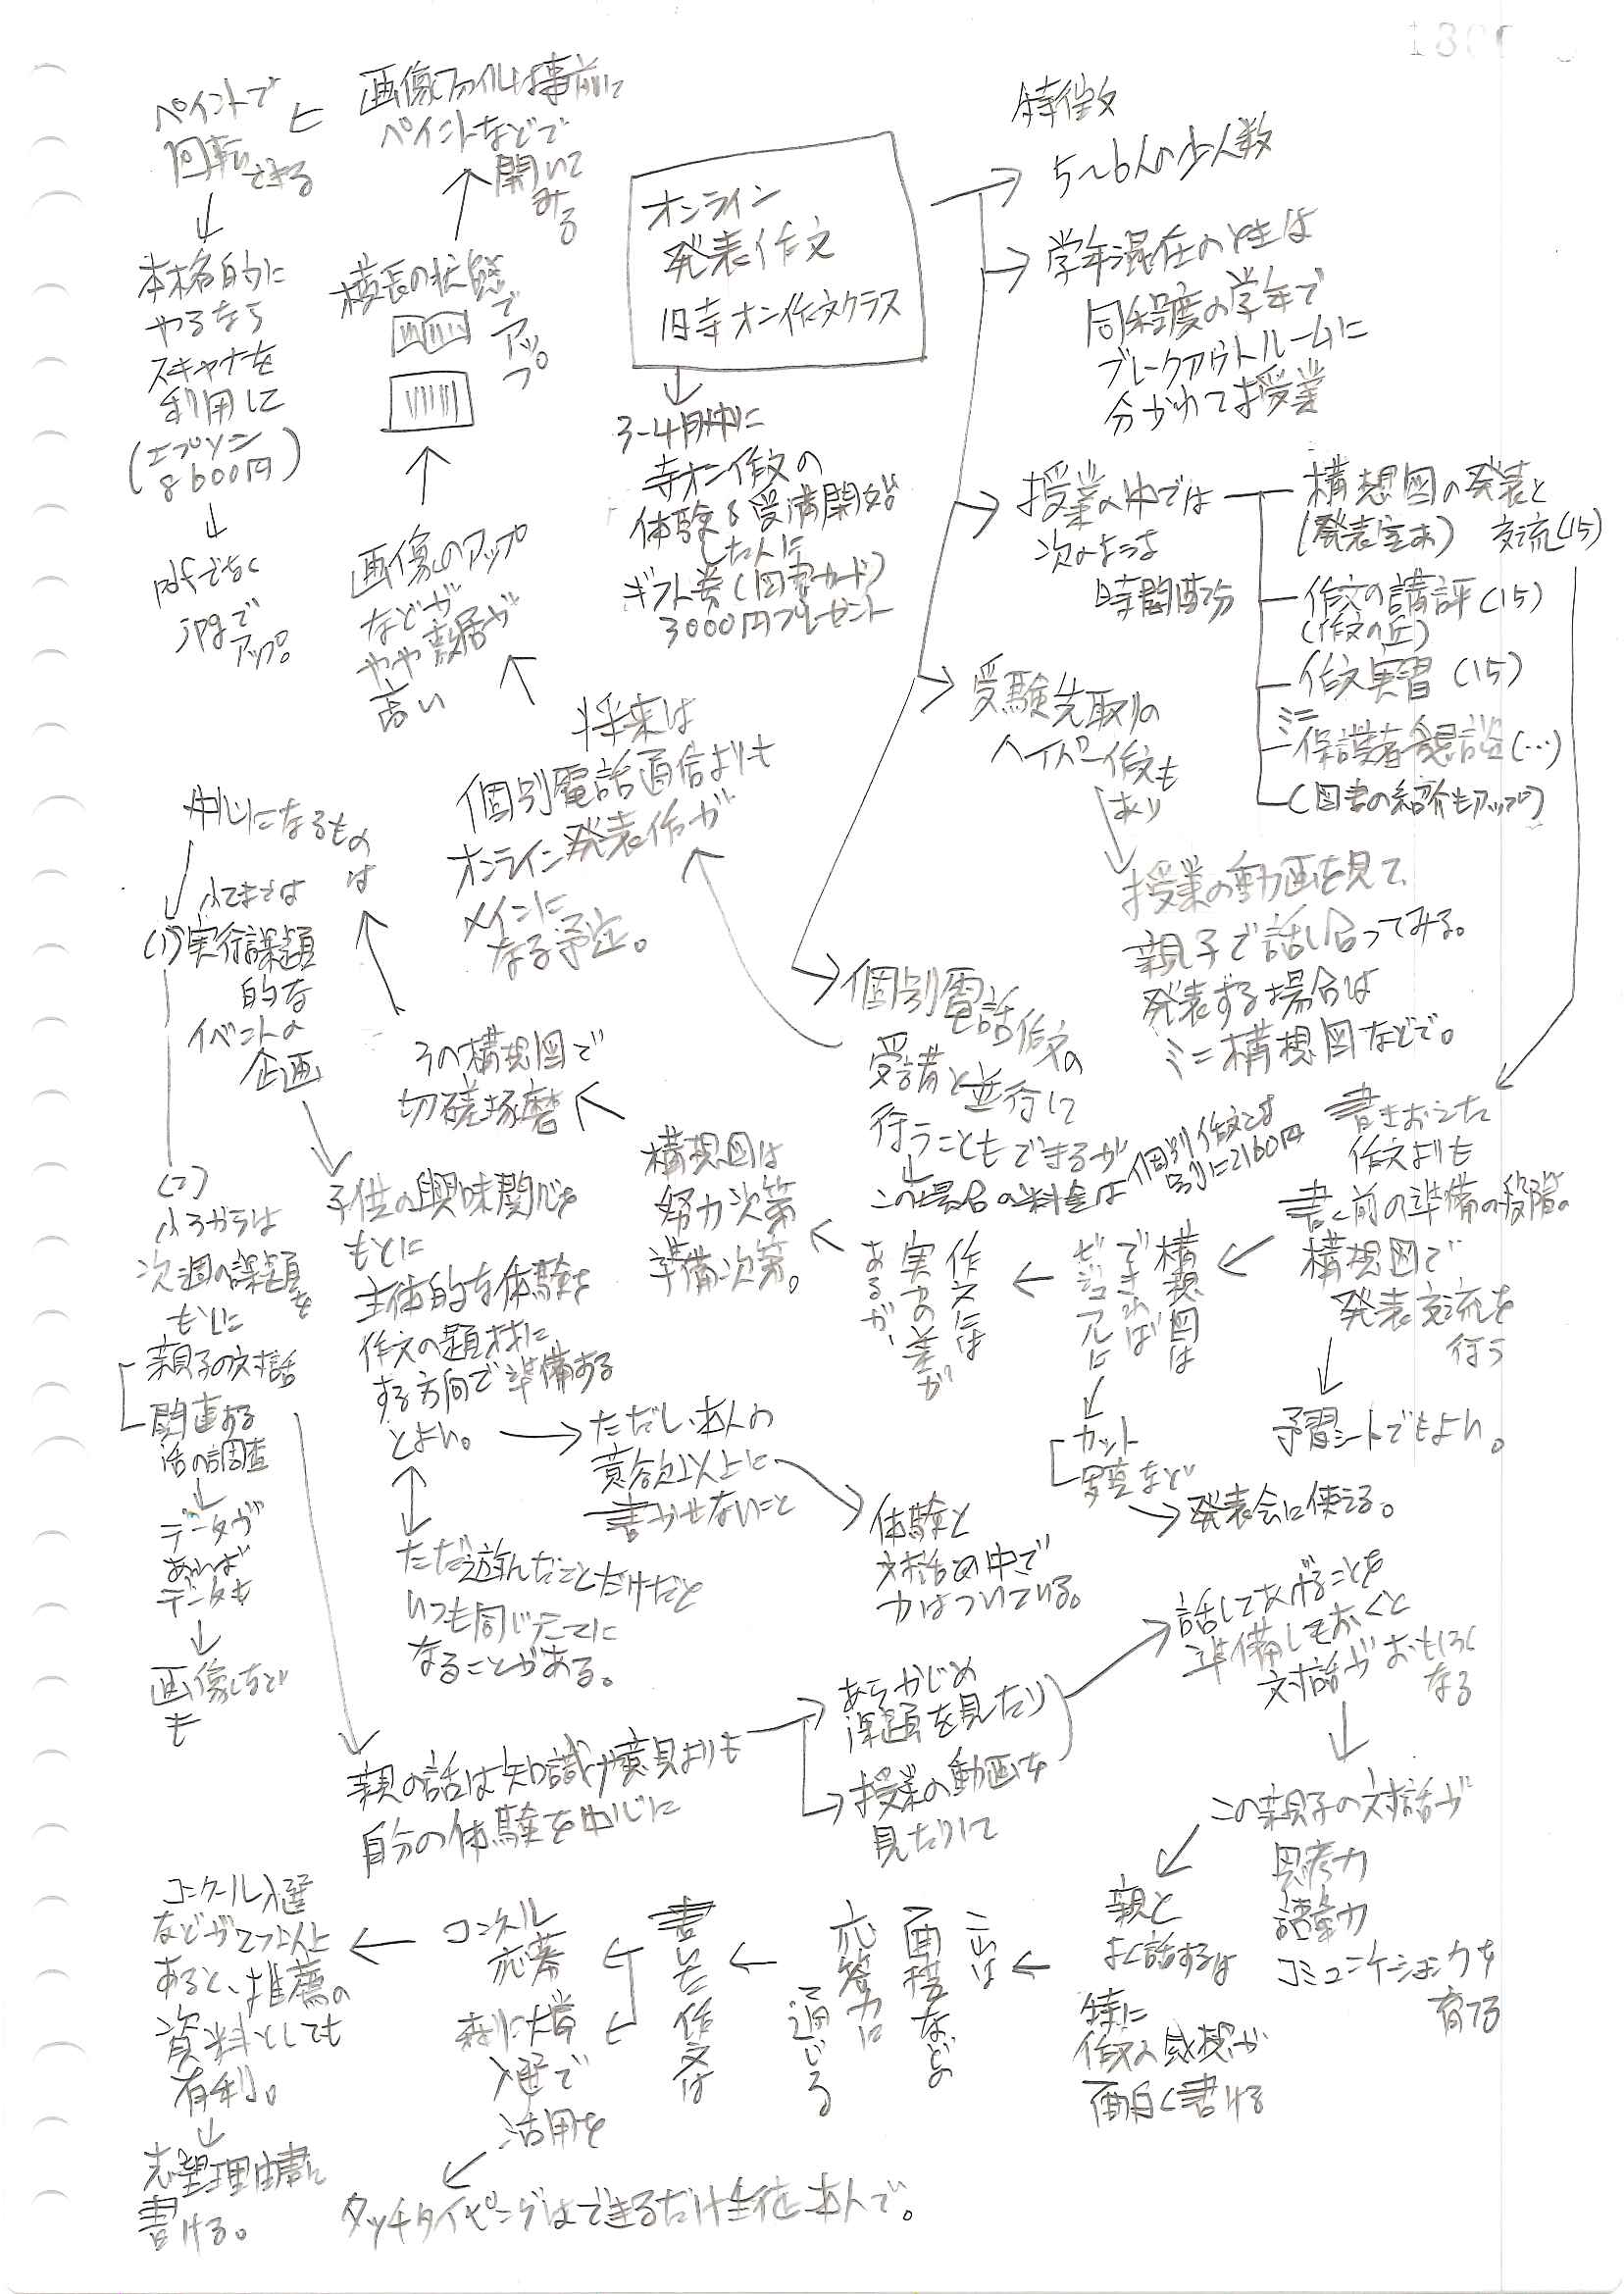 オンライン
発表作文
旧寺オン作文クラス
特徴
5~6人の少人数
学年混在のときは
同程度の学年で
ブレークアウトルームに
分かれて授業
授業の中では
次のような
時間配分
構想図の発表と
(発表室あ) 交流(15)
作文の講評(15)
(作文の丘)
作文実習(15)
ミニ
保護者懇談(…)
(図書の紹介もアップ)
受験先取りの
ハイパー作文も
あり
授業の動画を見て、
親子で話し合ってみる。
発表する場合は
ミニ構想図などで。
3-4月中に
寺オン作文の
体験&受講開始
した人に
ギフト券(図書カード)
3000円プレゼント
個別電話作文の
受講と並行して
行うこともできるが
この場合の料金は
個別作文とは
別に2160円
将来は
個別電話通信よりも
オンライン発表作が
メインに
なる予定。
画像のアップ
などが
やや敷居が
高い
横長の状態
で
アップ
画像ファイルは事前に
ペイントなどで
開いて
みる
ペイントで
回転できる
本格的に
やるなら
スキャナを
利用して
(エプソン
8600円)
pdfでなく
jpgで
アップ。
書きおえた
作文よりも
書く前の準備の段階の
構想図で
発表交流を
行う
予習シートでもよい。
構想図は
できれば
ビジュアルに
カット
写真など
発表会に使える。
作文には
実力の差が
あるが、
構想図は
努力次第
準備次第。
その構想図で
切磋琢磨
中心になるもの
は
小2までは
(1)実行課題
的な
イベントの
企画
子供の興味関心を
もとに
主体的な体験を
作文の題材に
する方向で準備する
とよい。
ただし、本人の
意欲以上に
書かせないこと
体験と
対話の中で
力はついている。
ただ遊んだことだけだと
いつも同じテーマに
なることがある。
(2)
小3からは
次週の課題を
もとに
親子の対話
関連する
話の調査
データが
あれば
データも
画像など
も
親の話は知識や意見よりも
自分の体験を中心に
あらかじめ
課題を見たり
授業の動画を
見たりして
話してあげることを
準備しておくと
対話がおもしろく
なる
この親子の対話が
思考力
語彙力
コミュニケーション力を
育てる
親と
よく話する子は
特に
作文の感想が
面白く書ける
これは
面接などの
応答力に
通じる
書いた作文は
コンクール
応募
森リン大賞
入選で
活用を
コンクール入選
などが2つ以上
あると、推薦の
資料としても
有利。
志望理由書に
書ける。
タッチタイピングはできるだけ生徒本人で。